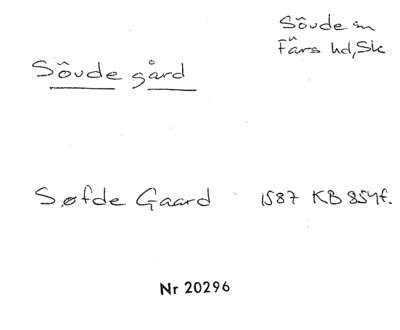 Sövde sn
Färs hd, Sk
Sövde gård
Søfde Gaard 1587 KB 854f.
Nr 20296